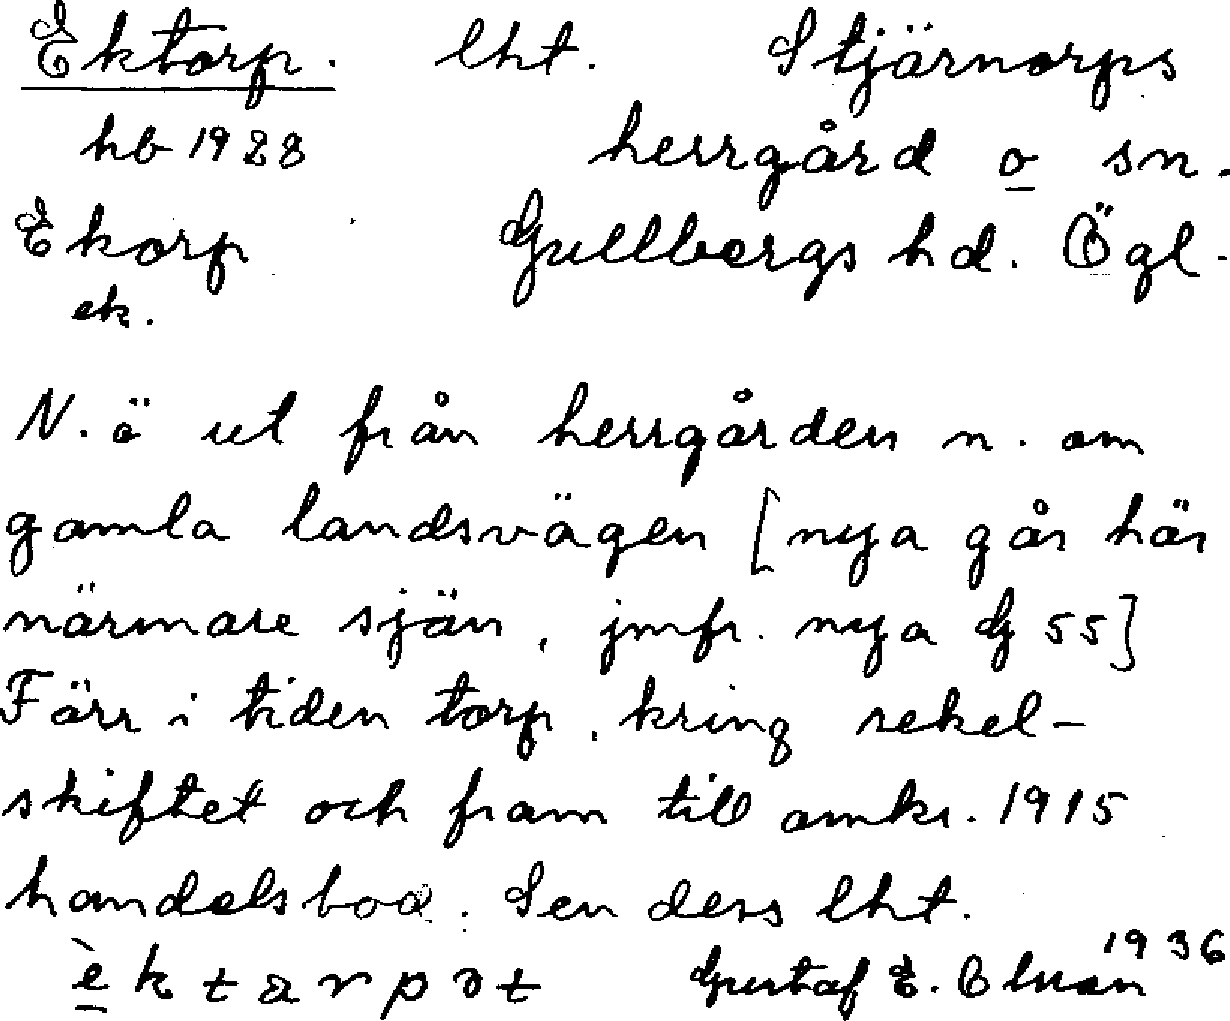 Ektorp. lht. Stjärnorps
hb 1928 herrgård o sn.
Ekorp Gullbergs hd. Ögl.
ek.
N. ö ut från herrgården n. om
gamla landsvägen [nya går här
närmare sjön, jmfr. nya G 55]
Förr i tiden torp, kring sekel-
skiftet och fram till omkr. 1915
handelsbod. Sen dess lht.
1936
Gustaf E.